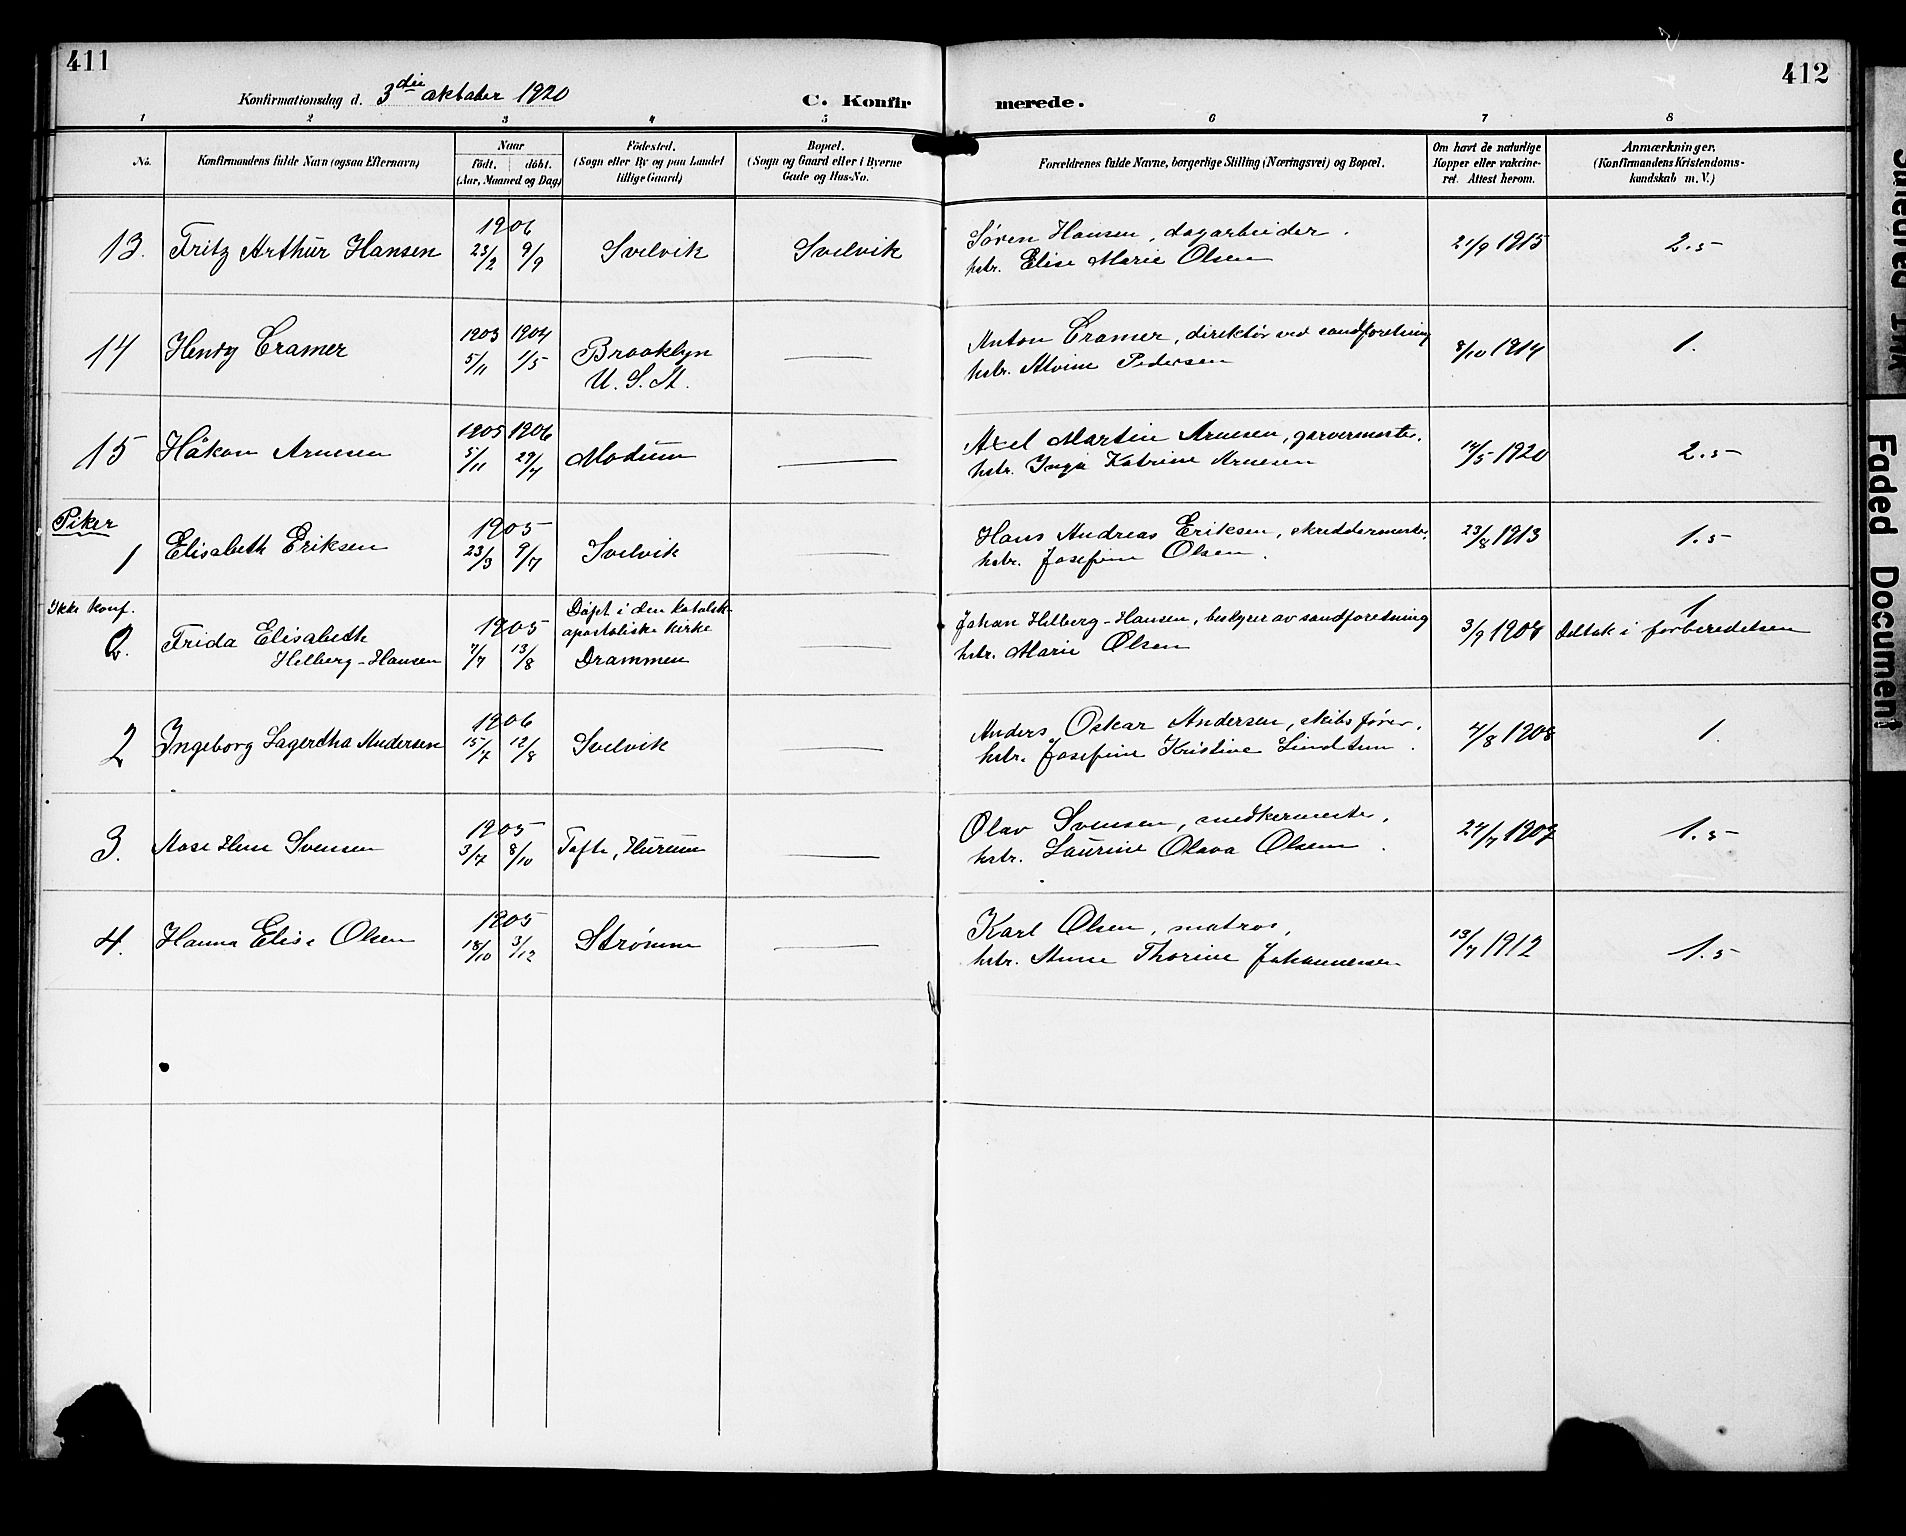 411
412
Konfirmationsdag d. 3die oktober 1920
C. Konfirmerede.
1 2 3 4 5 6 7 8
No.
Konfirmandens fulde Navn (ogsaa Efternavn)
Naar
født. døbt.
(Aar, Maaned og Dag)
Fødested.
(Sogn eller By og paa Landet
tillige Gaard)
Bopæl.
(Sogn og Gaard eller i Byerne
Gade og Hus-No.
Forældrenes fulde Navne, borgerlige Stilling (Næringsvei) og Bopæl.
Om havt de naturlige
Kopper eller vakcine-
ret. Attest herom.
Anmærkninger.
(Konfirmandens Kristendoms-
kundskab m. V.)
13. Fritz Arthur Hansen 1906 23/2 9/9 Svelvik Svelvik
Søren Hansen, dagarbeider.
hstr. Elise Marie Olsen
21/9 1915 2.5
14 Henry Cramer 1903 5/11 1904 1/5 Brooklyn
U. S. A.
Anton Cramer, direktør ved sandforetning
hstr. Alvine Pedersen
8/10 1914 1.
15 Håkon Arnesen 1905 5/11 1906 29/7 Modum
Axel Martin Arnesen, garvermester.
hstr. Inga Katrine Arnesen
14/5 1920 2.5
Piker
1 Elisabeth Eriksen 1905 23/3 9/7 Svelvik
Hans Andreas Eriksen, skreddermester.
hstr. Josefine Olsen.
23/8 1913 1.5
Ikke konf.
2. Frida Elisabeth
Helberg-Hansen
1905 7/7 13/8
Døpt i den katolsk-
apostoliske kirke
Drammen
Johan Helberg-Hansen, bestyrer av sandforetning
hstr. Marie Olsen
3/9 1908
1
Deltok i forberedelsen
2 Ingeborg Lagertha Andersen 1906 15/4 12/8 Svelvik
Anders Oskar Andersen, skibsfører.
hstr. Josefine Kristine Lindtun.
4/8 1908 1.
3. Aase Svensen 1905 3/7 8/10 Tofte, Hurum
Olav Svensen, snedkermester.
hstr. Laurine Olava Olsen.
24/7 1907 1.5
4. Hanna Elise Olsen 1905 18/10 3/12 Strømm
Karl Olsen, matros,
hstr. Anne Thorine Johannesen
13/7 1912 1.5
Faded Document